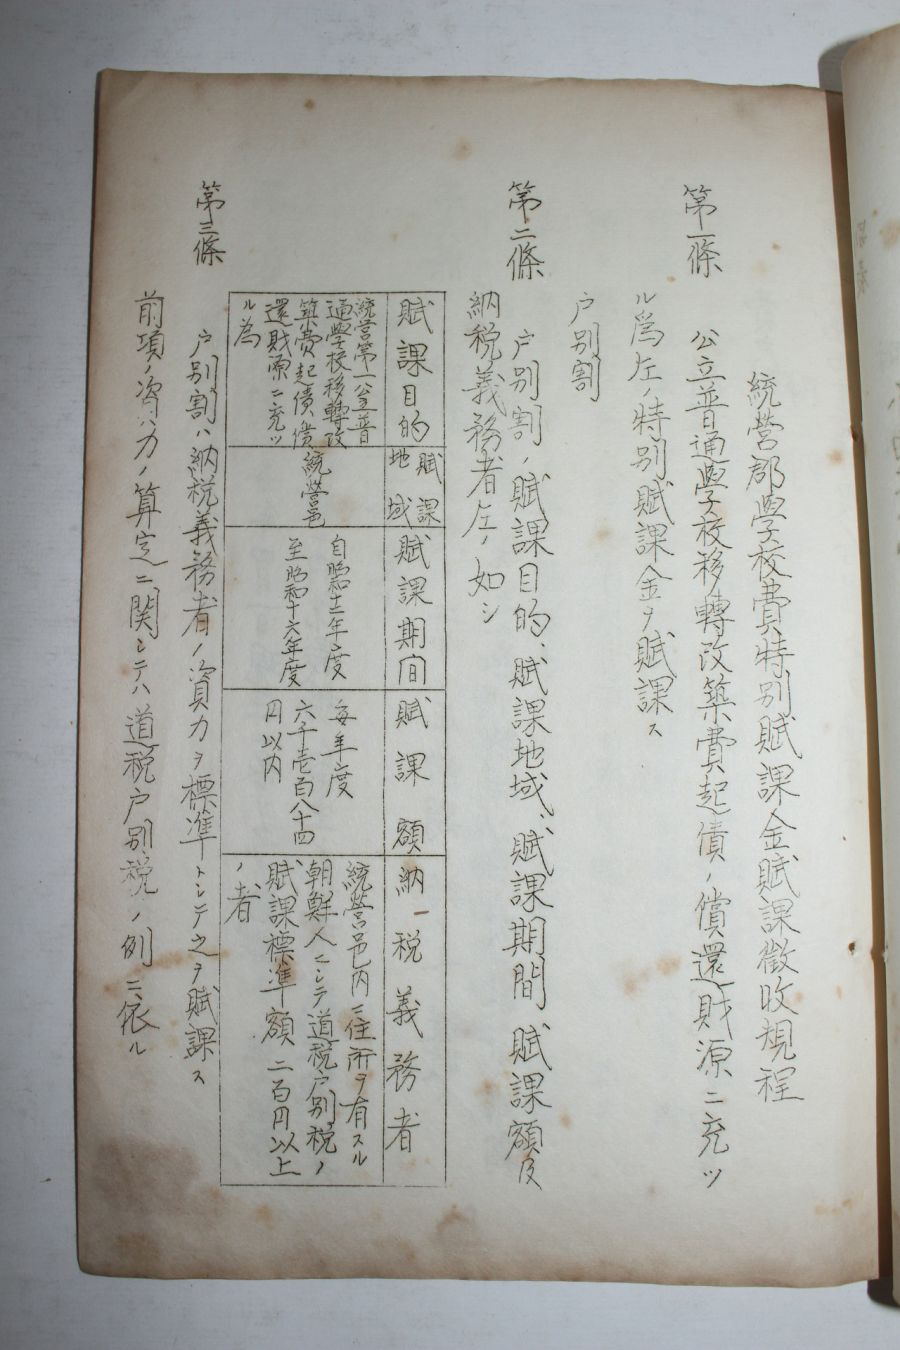 統營郡學校費特別賦課金賦課徵收規程
第一條
公立普通學校移轉改築費起債ノ償還財源ニ充ツ
ル爲左ノ特別賦課金ヲ賦課ス
戸別割
第二條
戸別割ノ賦課目的、賦課地域、賦課期間、賦課額及
納税義務者左ノ如シ
賦課目的
統営第一公立普
通學校移轉改
築費起債償
還財源ニ充ツ
ル為
賦課
地域
統營邑
賦課期间
自昭和十二年度
至昭和十六年度
賦課額
毎年度
六千壱百八十四
円以内
納税義務者
統營邑内ニ住所ヲ有スル
朝鮮人ニシテ道税戸別税ノ
賦課標準額二百円以上
ノ者
第三條
戸別割ハ納税義務者ノ資力ヲ標準トシテ之ヲ賦課ス
前項ノ資力ノ算定ニ関シテハ道税戸別税ノ例ニ依ル